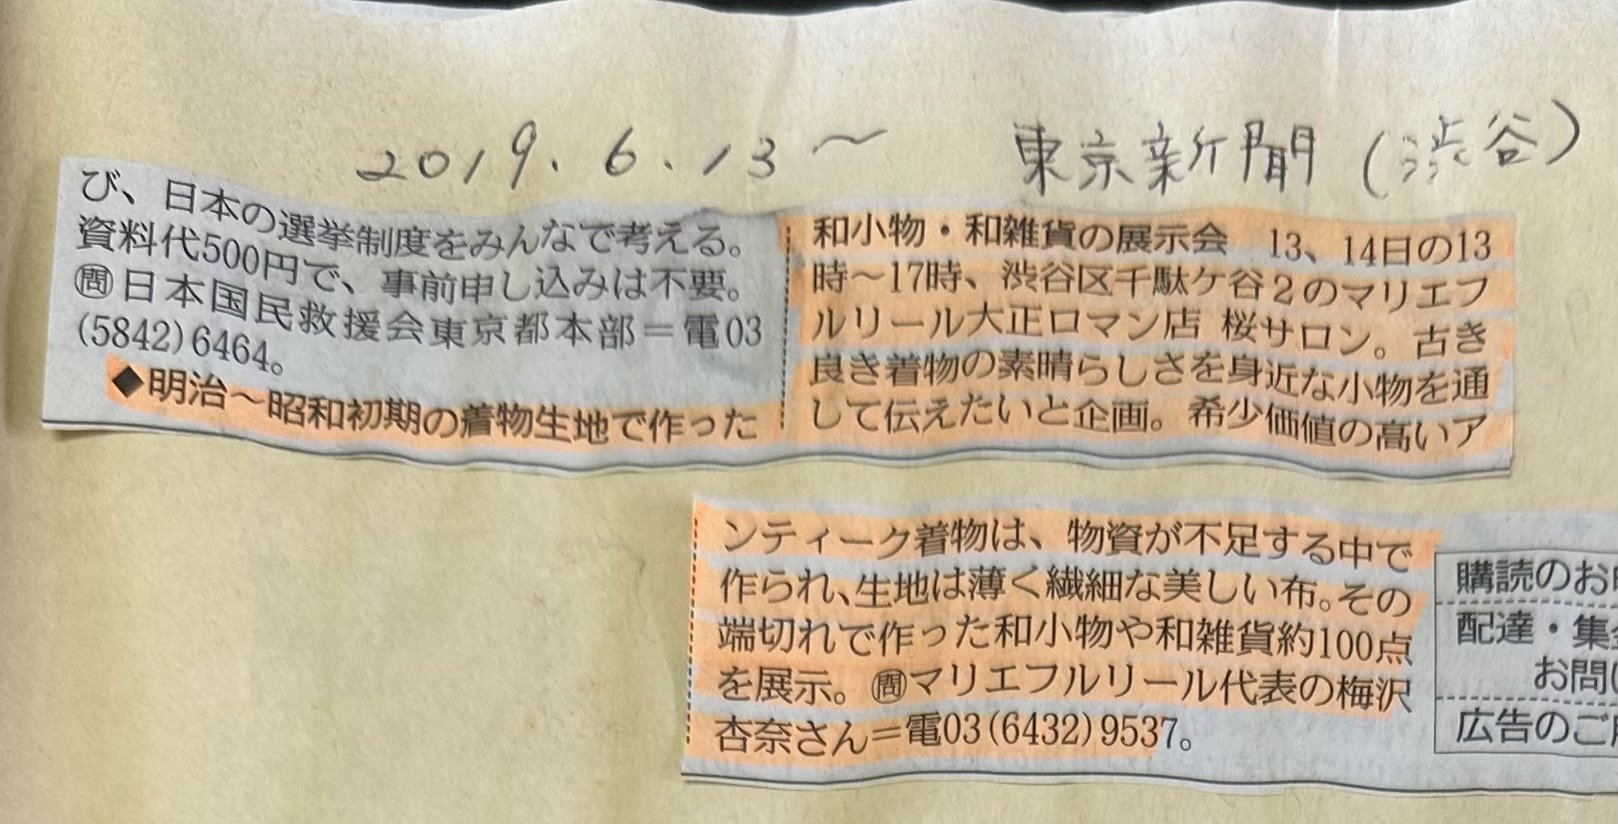 2019.6.13〜 東京新聞(渋谷)
び、日本の選挙制度をみんなで考える。
資料代500円で、事前申し込みは不要。
㉄日本国民救援会東京都本部＝電03
(5842)6464。
◆明治〜昭和初期の着物生地で作った
和小物・和雑貨の展示会　13、14日の13
時〜17時、渋谷区千駄ケ谷2のマリエフ
ルリール大正ロマン店 桜サロン。古き
良き着物の素晴らしさを身近な小物を通
して伝えたいと企画。希少価値の高いア
ンティーク着物は、物資が不足する中で
作られ、生地は薄く繊細な美しい布。その
端切れで作った和小物や和雑貨約100点
を展示。㉄マリエフルリール代表の梅沢
杏奈さん＝電03(6432)9537。
購読のお
配達・集
お問
広告のご